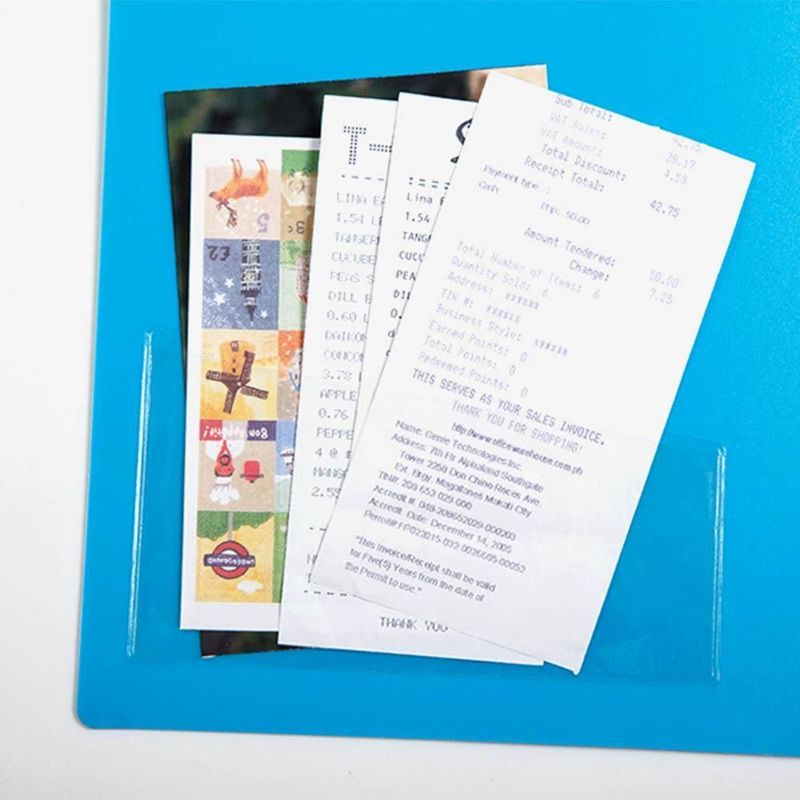 5
3c
£2
Bon Appétit!
UNDERGROUND
T-
LINA
1.54
TANGER
CUCUBE
PEAS S
DILL
0.60
DAIKON
CONCOM
3.78
APPLE
0.76
PEPPE
4 @
MANG
2.55
THANK YOU
Lina
1.54
TANG
CUCU
PEA
Sub Total: 42.75
VAT Sales: 38.17
VAT Amount: 4.58
Total Discount:
Receipt Total: 42.75
Payment type :
Cash Php. 50.00
Amount Tendered: 50.00
Change: 7.25
Total Number of Items: 6
Quantity Sold: 6
Address: ******
TIN #: ******
Business Style: ******
Earned Points: 0
Total Points: 0
Redeemed Points: 0
THIS SERVES AS YOUR SALES INVOICE.
THANK YOU FOR SHOPPING!
http://www.officewarehouse.com.ph
Name: Genie Technologies Inc.
Address: 7th Flr Alphaland Southgate
Tower 2258 Don Chino Roces Ave.
Ext. Brgy. Magallanes Makati City
TIN#: 208 653 029 000
Accredit #: 048-208652029-000203
Accredit. Date: December 14, 2005
Permit# FP022015-032-0026605-00052
"This Invoice/Receipt shall be valid
for Five(5) Years from the date of
the Permit to use."